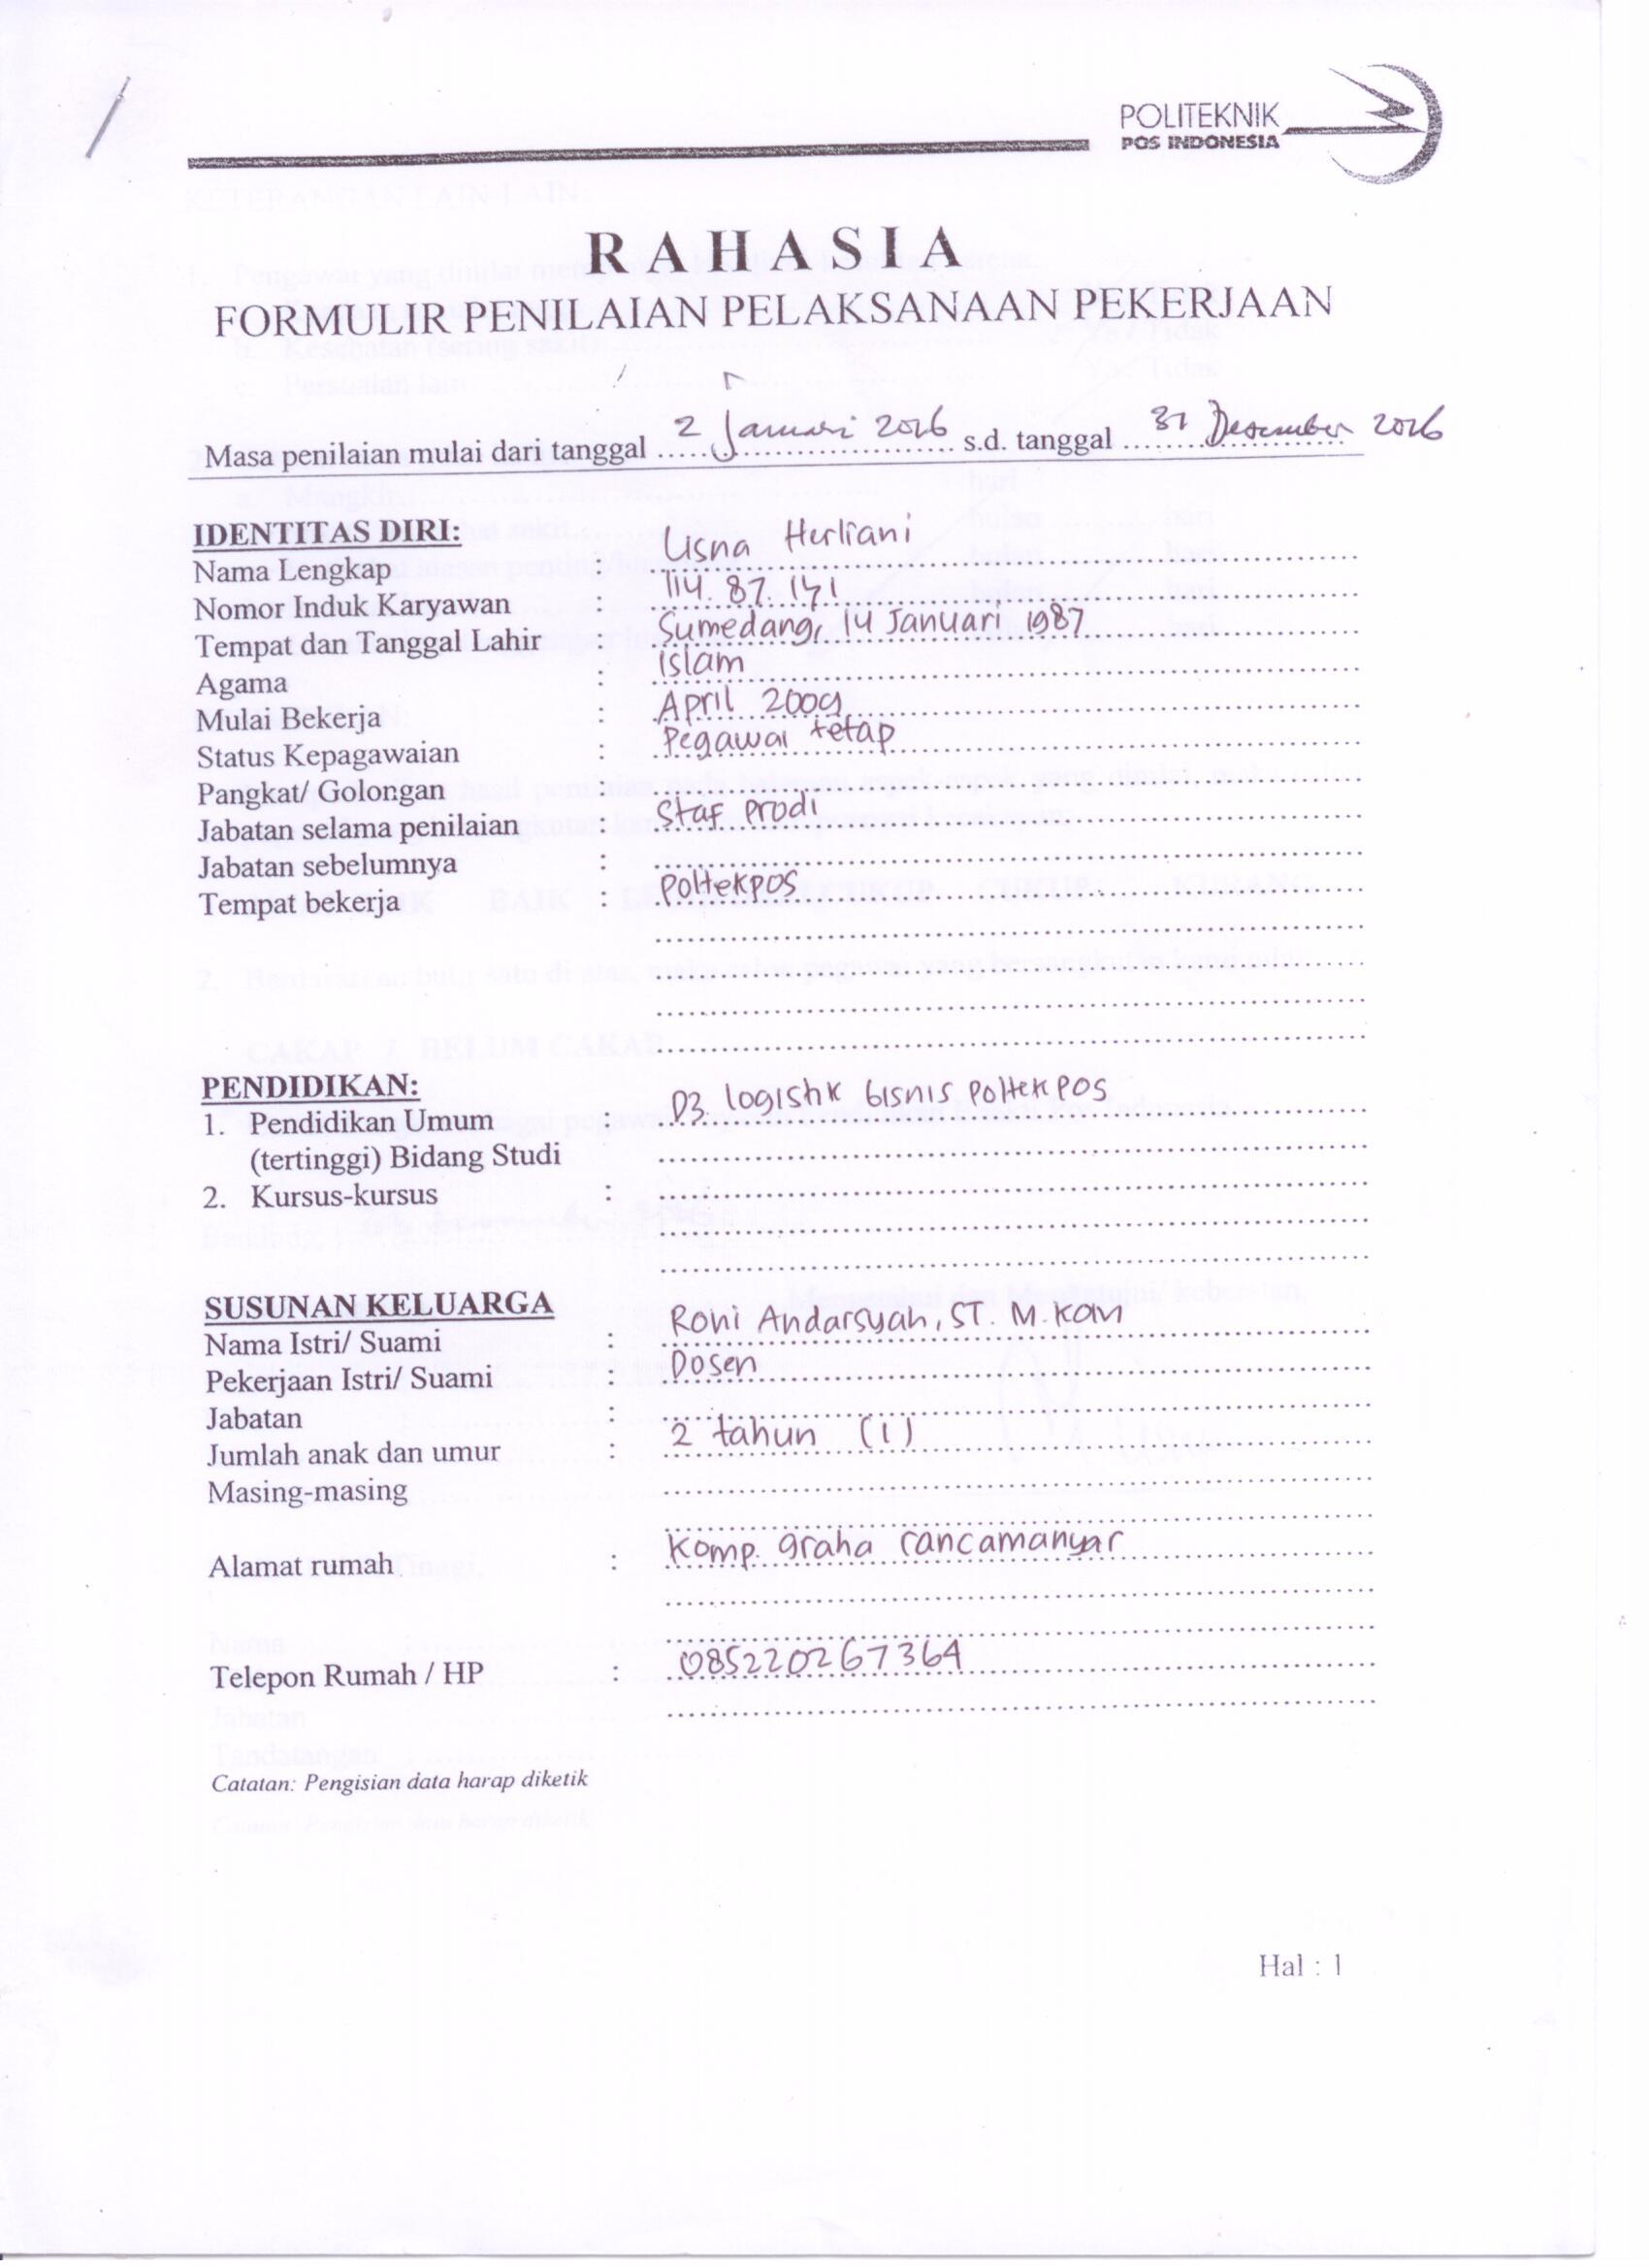 POLITEKNIK
POS INDONESIA
R A H A S I A
FORMULIR PENILAIAN PELAKSANAAN PEKERJAAN
Masa penilaian mulai dari tanggal 2 Januari 2016 s.d. tanggal 31 Desember 2016
IDENTITAS DIRI:
Nama Lengkap : Usna Herliani
Nomor Induk Karyawan : 114.87.141
Tempat dan Tanggal Lahir : Sumedang, 14 Januari 1987
Agama : Islam
Mulai Bekerja : April 2009
Status Kepagawaian : Pegawai tetap
Pangkat/ Golongan :
Jabatan selama penilaian : Staf prodi
Jabatan sebelumnya :
Tempat bekerja : Poltekpos
PENDIDIKAN:
1. Pendidikan Umum D3 logistik bisnis poltekpos
(tertinggi) Bidang Studi
2. Kursus-kursus :
SUSUNAN KELUARGA
Nama Istri/ Suami : Roni Andarsyah, ST. M.Kom
Pekerjaan Istri/ Suami : Dosen
Jabatan :
Jumlah anak dan umur : 2 tahun (1)
Masing-masing
Alamat rumah : Komp. graha rancamanyar
Telepon Rumah / HP : 085220267364
Catatan: Pengisian data harap diketik
Hal : 1